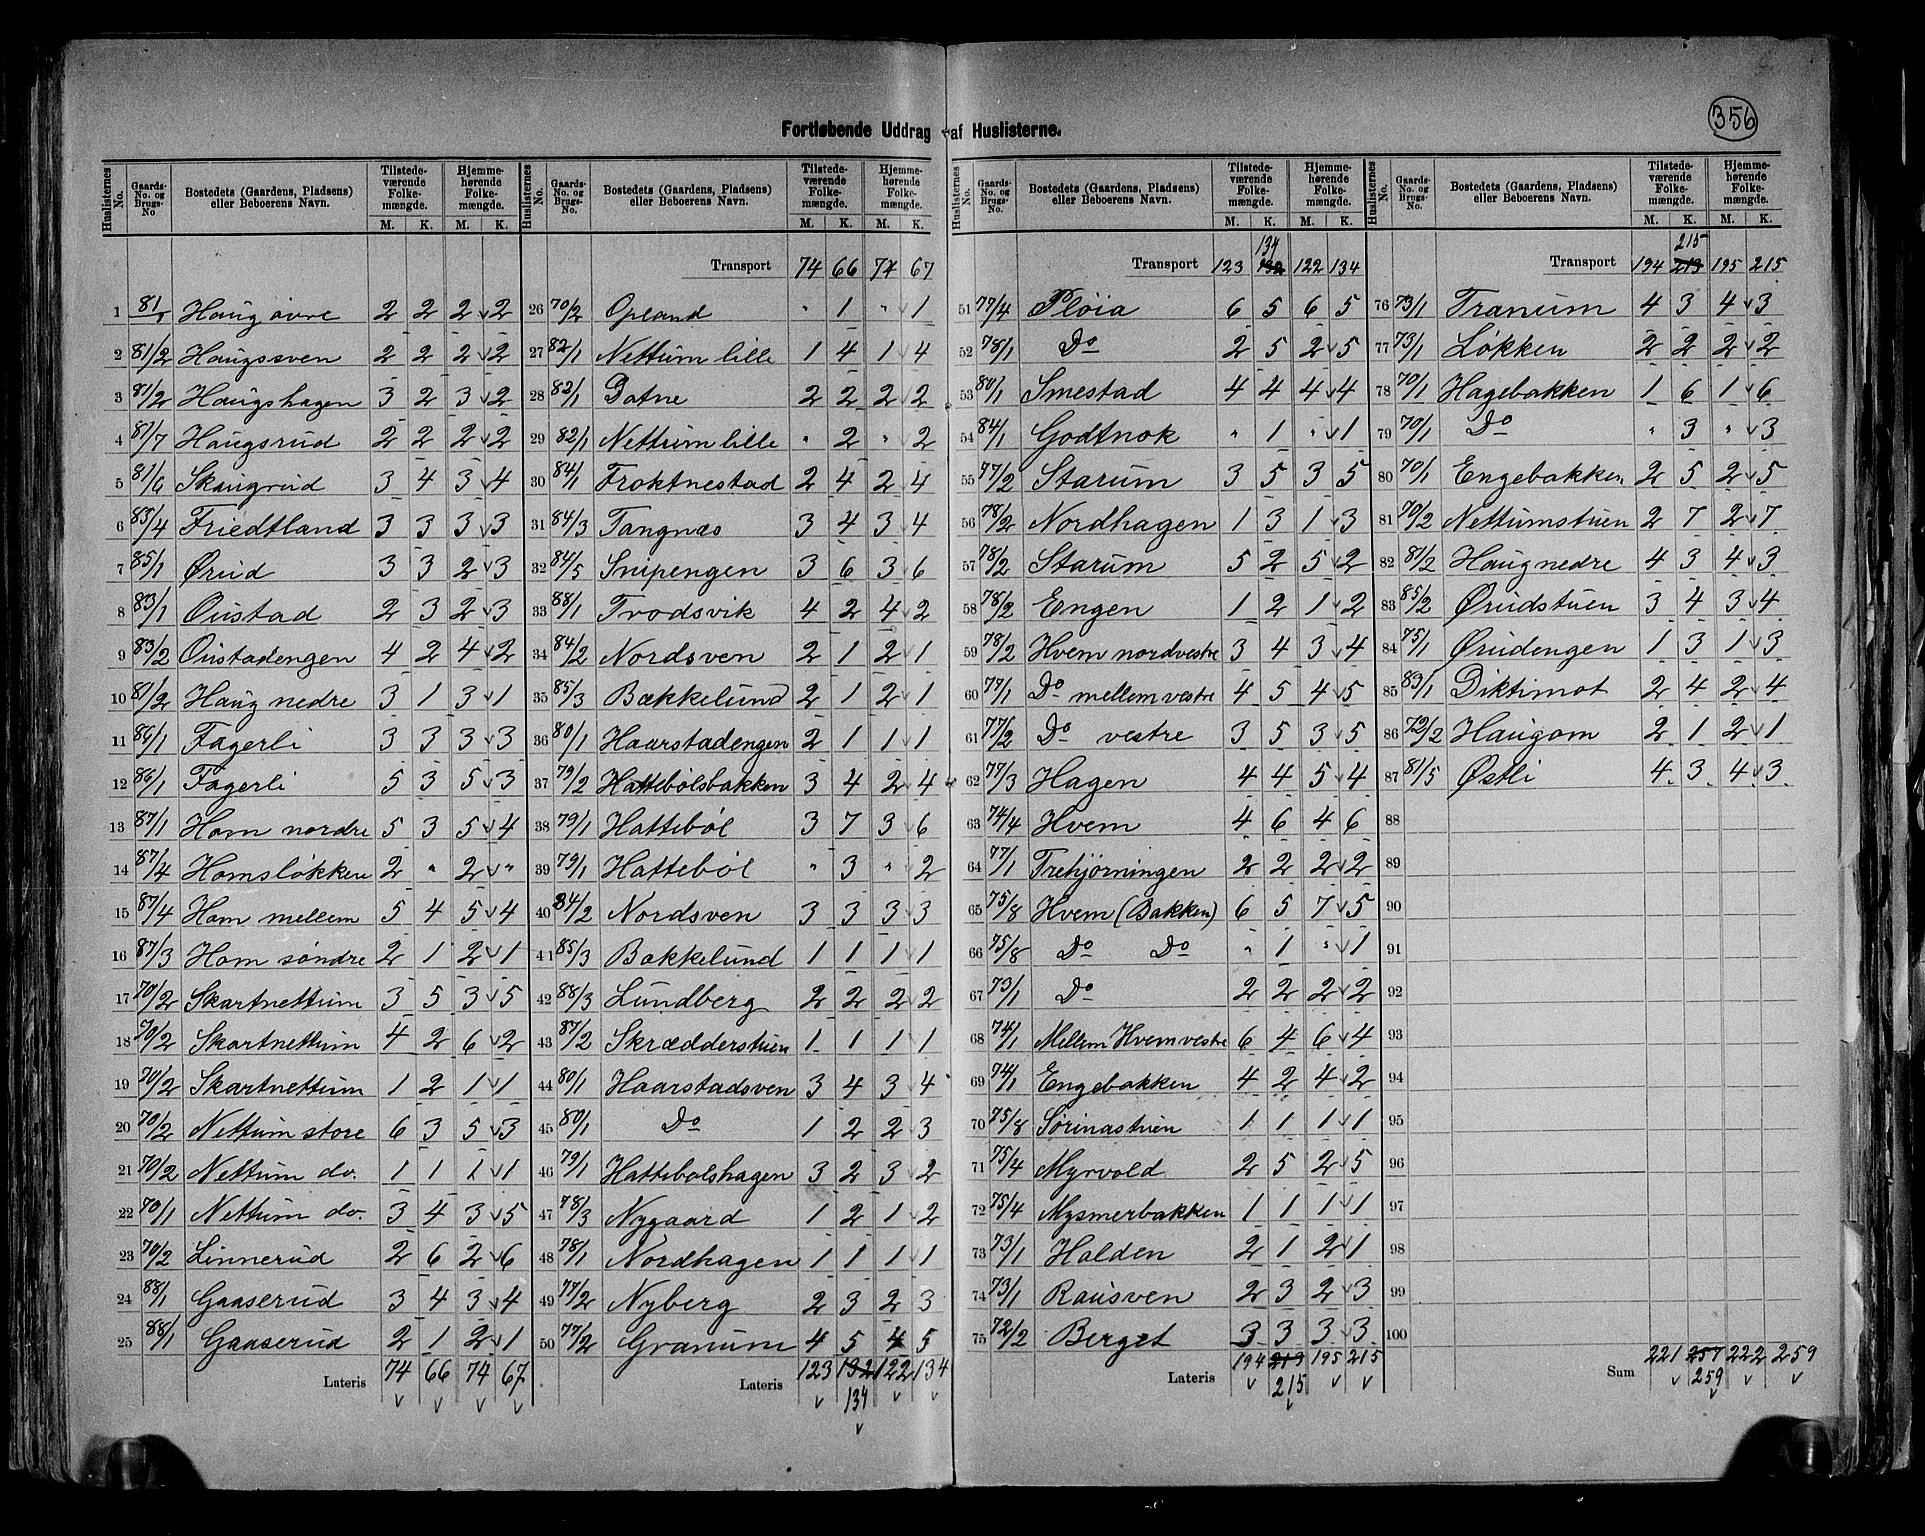 356
Fortløbende Uddrag af Huslisterne.
Huslisternes No. Gaards-No. og Brugs-No Bostedets (Gaardens, Pladsens) eller Beboerens Navn. Tilstede-værende Folke-mængde. Hjemme-hørende Folke-mængde.
M. K. M. K.
1 81/1 Haug øvre 2 2 2 2
2 81/2 Haugssven 2 2 2 2
3 81/2 Haugshagen 3 2 3 2
4 81/7 Haugsrud 2 2 2 2
5 81/6 Skaugrud 3 4 3 4
6 83/4 Friedtland 3 3 3 3
7 85/1 Ørud 3 3 2 3
8 83/1 Oustad 2 3 2 3
9 83/2 Oustadengen 4 2 4 2
10 81/2 Haug nedre 3 1 3 1
11 86/1 Fagerli 3 3 3 3
12 86/1 Fagerli 5 3 5 3
13 87/1 Hom nordre 5 3 5 4
14 87/4 Homsløkken 2 " 2 "
15 87/4 Hom mellem 5 4 5 4
16 87/3 Hom søndre 2 1 2 1
17 70/2 Skartnettum 3 5 3 5
18 70/2 Skartnettum 4 2 6 2
19 70/2 Skartnettum 1 2 1 1
20 70/2 Nettum store 6 3 5 3
21 70/2 Nettum do. 1 1 1 1
22 70/1 Nettum do. 3 4 3 5
23 70/2 Linnerud 2 6 2 6
24 88/1 Gaaserud 3 4 3 4
25 88/1 Gaaserud 2 1 2 1
Lateris 74 66 74 67
Huslisternes No. Gaards-No. og Brugs-No. Bostedets (Gaardens, Pladsens) eller Beboerens Navn. Tilstede-værende Folke-mængde. Hjemme-hørende Folke-mængde.
M. K. M. K.
Transport 74 66 74 67
26 70/2 Opland " 1 " 1
27 82/1 Nettum lille 1 4 1 4
28 82/1 Dotne 2 2 2 2
29 82/1 Nettum lille " 2 " 2
30 84/1 Froktnestad 2 4 2 4
31 84/3 Tangnæs 3 4 3 4
32 84/5 Snipengen 3 6 3 6
33 88/1 Trodsvik 4 2 4 2
34 84/2 Nordsven 2 1 2 1
35 85/3 Bækkelund 2 1 2 1
36 80/1 Haarstadengen 2 1 1 1
37 79/2 Hattebølsbakken 3 4 2 4
38 79/1 Hattebøl 3 7 3 6
39 79/1 Hattebøl " 3 " 2
40 84/2 Nordsven 3 3 3 3
41 85/3 Bakkelund 1 1 1 1
42 88/3 Lundberg 2 2 2 2
43 87/2 Skrædderstuen 1 1 1 1
44 80/1 Haarstadsven 3 4 3 4
45 80/1 Do 1 2 2 3
46 79/1 Hattebølshagen 3 2 3 2
47 78/3 Nygaard 1 2 1 2
48 78/1 Nordhagen 1 1 1 1
49 77/2 Nyberg 2 3 2 3
50 77/2 Granum 4 5 4 5
Lateris 123 132 122 134
134
Huslisternes No. Gaards-No. og Brugs-No. Bostedets (Gaardens, Pladsens) eller Beboerens Navn. Tilstede-værende Folke-mængde. Hjemme-hørende Folke-mængde.
M. K. M. K.
134
Transport 123 132 122 134
51 77/4 Pløia 6 5 6 5
52 78/1 Do 2 5 2 5
53 80/1 Smestad 4 4 4 4
54 84/1 Godtnok " 1 " 1
55 77/2 Starum 3 5 3 5
56 78/2 Nordhagen 1 3 1 3
57 78/2 Starum 5 2 5 2
58 78/2 Engen 1 2 1 2
59 78/2 Hvem nordvestre 3 4 3 4
60 77/1 Do mellem vestre 4 5 4 5
61 77/2 Do vestre 3 5 3 5
62 77/3 Hagen 4 4 5 4
63 74/4 Hvem 4 6 4 6
64 77/1 Trehjørningen 2 2 2 2
65 75/8 Hvem (Bakken) 6 5 7 5
66 75/8 Do Do " 1 " 1
67 73/1 Do 2 2 2 2
68 74/1 Mellem Hvem vestre 6 4 6 4
69 74/1 Engebakken 4 2 4 2
70 75/8 Sørinastuen 1 1 1 1
71 75/4 Myrvold 2 5 2 5
72 75/4 Mysmerbakken 1 1 1 1
73 73/1 Halden 2 1 2 1
74 73/1 Rausven 2 3 2 3
75 72/2 Berget 3 3 3 3
Lateris 194 213 195 215
215
Huslisternes No. Gaards-No. og Brugs-No. Bostedets (Gaardens, Pladsens) eller Beboerens Navn. Tilstede-værende Folke-mængde. Hjemme-hørende Folke-mængde.
M. K. M. K.
215
Transport 194 213 195 215
76 73/1 Tranum 4 3 4 3
77 73/1 Løkken 2 2 2 2
78 70/1 Hagebakken 1 6 1 6
79 70/1 Do " 3 " 3
80 70/1 Engebakken 2 5 2 5
81 70/2 Nettumstuen 2 7 2 7
82 81/2 Haug nedre 4 3 4 3
83 85/2 Ørudstuen 3 4 3 4
84 75/1 Ørudengen 1 3 1 3
85 83/1 Diktimot 2 4 2 4
86 72/2 Haugom 2 1 2 1
87 81/5 Østli 4 3 4 3
88
89
90
91
92
93
94
95
96
97
98
99
100
Sum 221 257 222 259
259